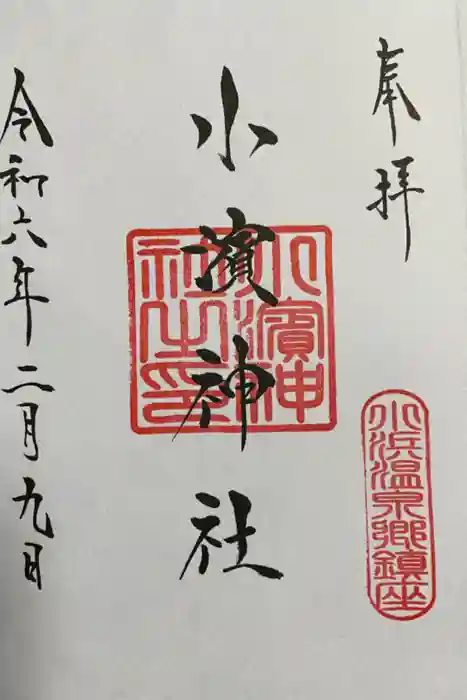 奉拝
小浜温泉郷鎮座
小濱神社
小濱神
社之印
令和六年二月九日